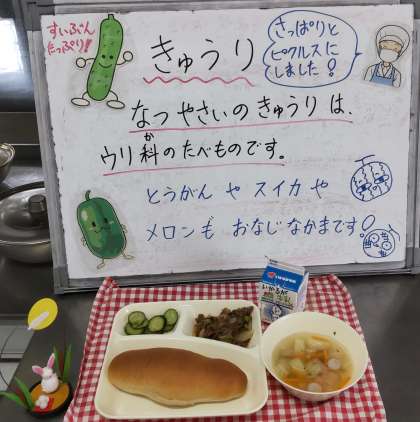 すいぶん
たっぷり!!
きゅうり
さっぱりと
ピクルスに
しました!
なつやさいのきゅうりは、
か
ウリ科のたべものです。
とうがん や スイカ や
メロンも おなじなかまです!